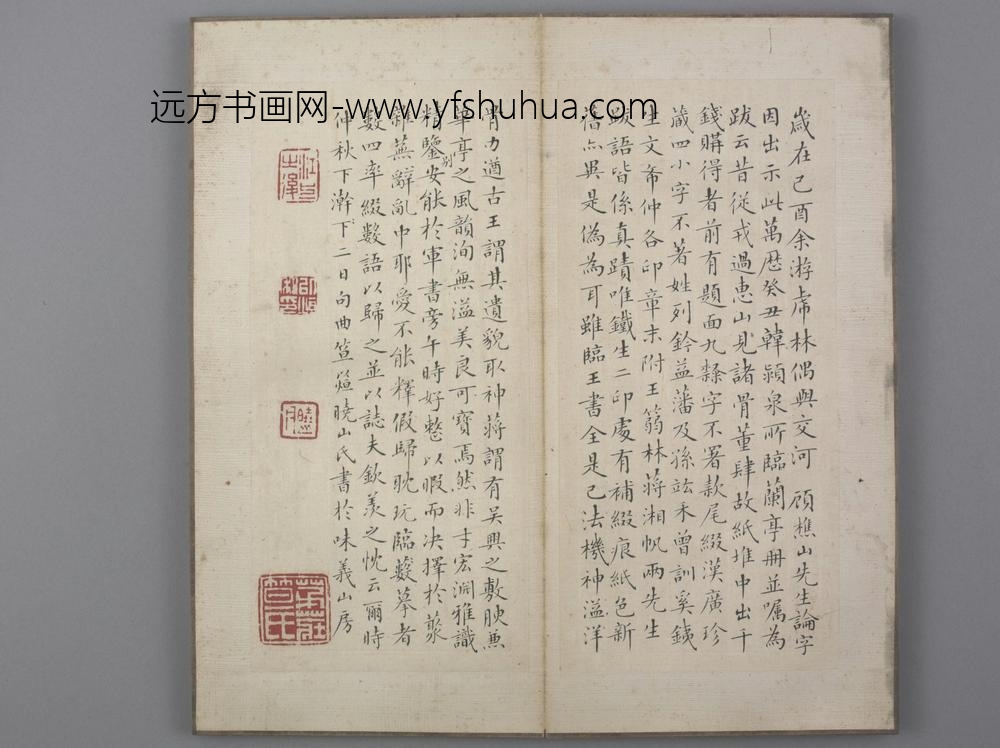 远方书画网-www.yfshuhua.com
歲在己酉余游虎林偶與交河 顧樵山先生論字
因出示此萬厯癸丑韓潁泉所臨蘭亭冊並嘱為
跋云昔從戎過惠山見諸骨董肆故紙堆中出千
錢購得者前有題面九隸字不署款尾綴漢廣珍
藏四小字不著姓列鈐益藩及孫竑禾曾訓奚銕
生文衡仲各印章末附王蒻林蔣湘帆兩先生
跋語皆係真蹟唯鐵生二印處有補綴痕紙色新
舊亦異是偽為耳雖臨王書全是己法機神溢洋
骨力遒古王謂其遺貌取神蔣謂有吴興之敷腴兼
華亭之風韻洵無溢美良可寶焉然非才宏洞雅識
精鑒别安能於軍書旁午時好整以暇而决擇於叢
雜蕪辭亂中耶愛不能釋假歸耽玩臨藂摹者
數四率綴數語以歸之並以誌夫欽羡之忱云爾時
仲秋下澣下二日句曲笪 曉山氏書於味義山房